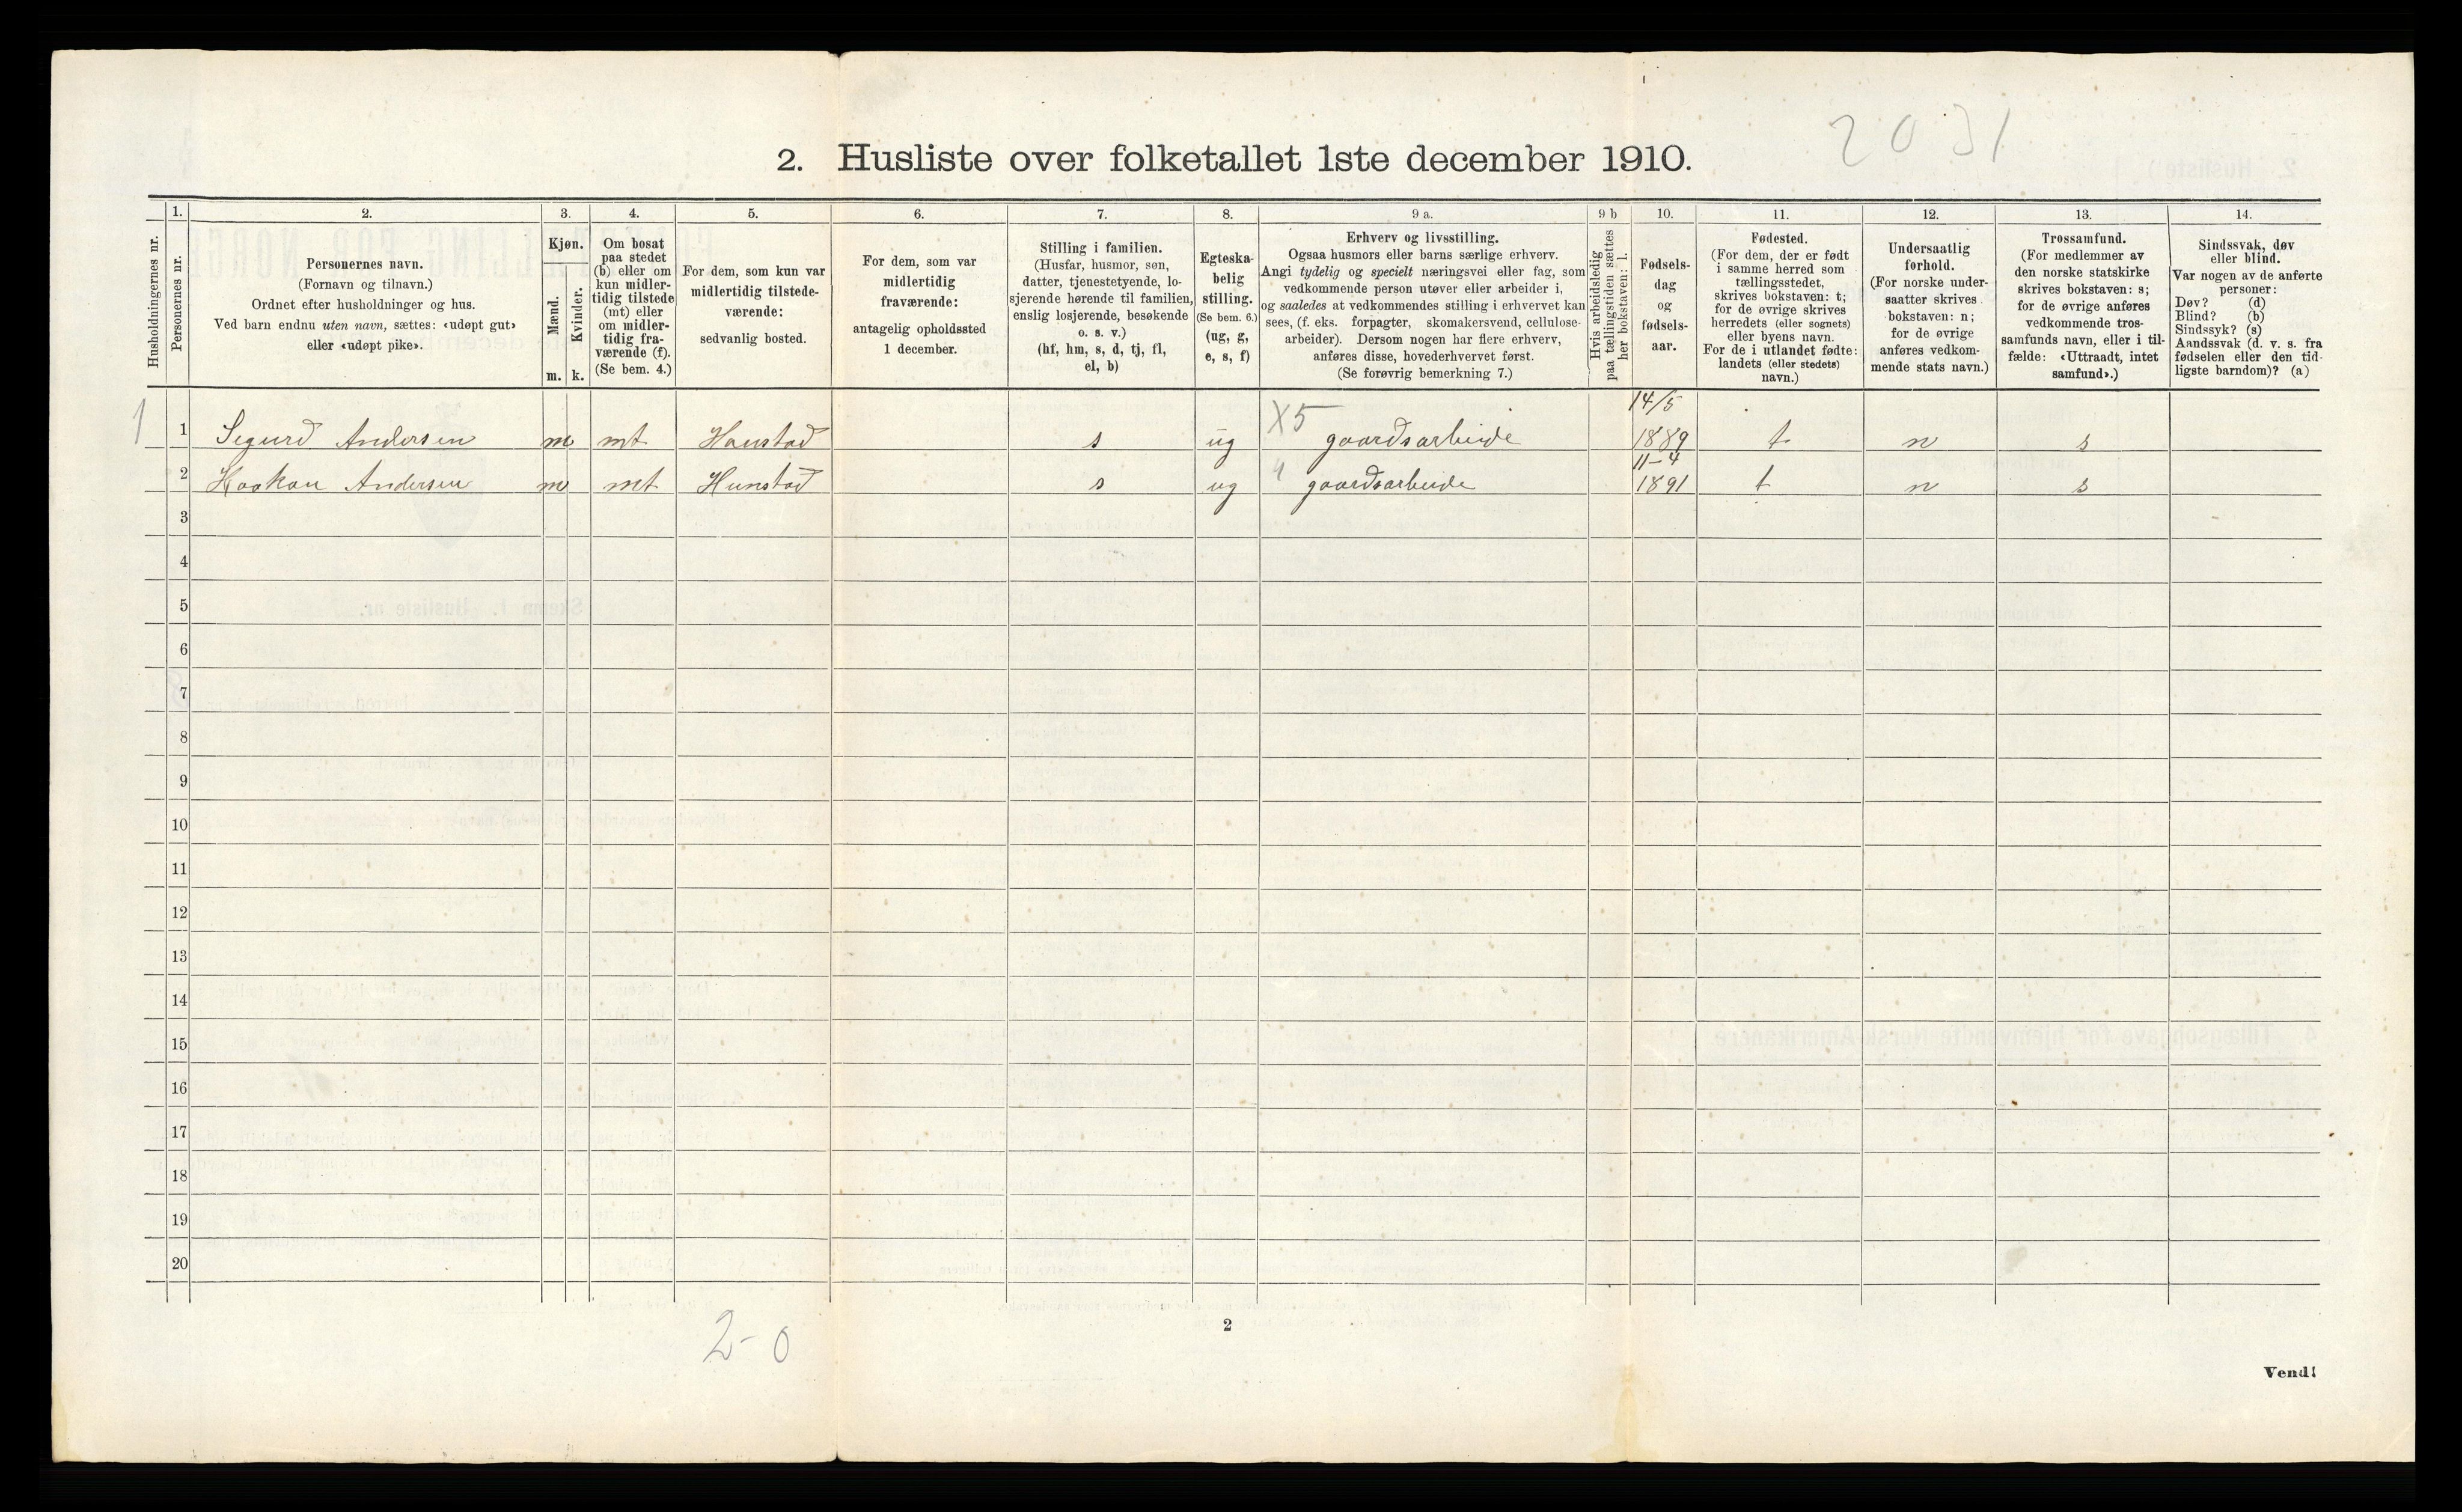 2031
2. Husliste over folketallet 1ste december 1910.
Husholdningernes nr.
1.
Personernes nr.
2.
Personernes navn.
(Fornavn og tilnavn.)
Ordnet efter husholdninger og hus.
Ved barn endnu uten navn, sættes: «udøpt gut»
eller «udøpt pike».
3.
Kjøn.
Mænd.
Kvinder.
m. k.
4.
Om bosat
paa stedet
(b) eller om
kun midler-
tidig tilstede
(mt) eller
om midler-
tidig fra-
værende (f).
(Se bem. 4.)
5.
For dem, som kun var
midlertidig tilstede-
værende:
sedvanlig bosted.
6.
For dem, som var
midlertidig
fraværende:
antagelig opholdssted
1 december.
7.
Stilling i familien.
(Husfar, husmor, søn,
datter, tjenestetyende, lo-
sjerende hørende til familien,
enslig losjerende, besøkende
o. s. v.)
(hf, hm, s, d, tj, fl,
el, b)
8.
Egteska-
belig
stilling.
(Se bem. 6.)
(ug, g,
e, s, f)
9 a.
Erhverv og livsstilling.
Ogsaa husmors eller barns særlige erhverv.
Angi tydelig og specielt næringsvei eller fag, som
vedkommende person utøver eller arbeider i,
og saaledes at vedkommendes stilling i erhvervet kan
sees, (f. eks. forpagter, skomakersvend, cellulose-
arbeider). Dersom nogen har flere erhverv,
anføres disse, hovederhvervet først.
(Se forøvrig bemerkning 7.)
9 b
Hvis arbeidsledig
paa tællingstiden sættes
her bokstaven: l.
10.
Fødsels-
dag
og
fødsels-
aar.
11.
Fødested.
(For dem, der er født
i samme herred som
tællingsstedet,
skrives bokstaven: t;
for de øvrige skrives
herredets (eller sognets)
eller byens navn.
For de i utlandet fødte:
landets (eller stedets)
navn.)
12.
Undersaatlig
forhold.
(For norske under-
saatter skrives
bokstaven: n;
for de øvrige
anføres vedkom-
mende stats navn.)
13.
Trossamfund.
(For medlemmer av
den norske statskirke
skrives bokstaven: s;
for de øvrige anføres
vedkommende tros-
samfunds navn, eller i til-
fælde: «Uttraadt, intet
samfund».)
14.
Sindssvak, døv
eller blind.
Var nogen av de anførte
personer:
Døv? (d)
Blind? (b)
Sindssyk? (s)
Aandssvak (d. v. s. fra
fødselen eller den tid-
ligste barndom)? (a)
1 1 Sigurd Andersen m mt Haustad s ug X5 gaardsarbeide 14/5 1889 t n s
2 Haakon Andersen m mt Hunstad s ug 4 gaardsarbeide 11-4 1891 t n s
3
4
5
6
7
8
9
10
11
12
13
14
15
16
17
18
19
20
2-0
2
Vend!